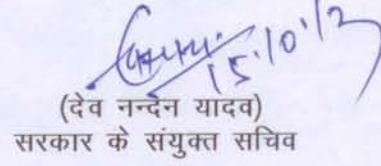 15.10.12
(देव नन्दन यादव)
सरकार के संयुक्त सचिव